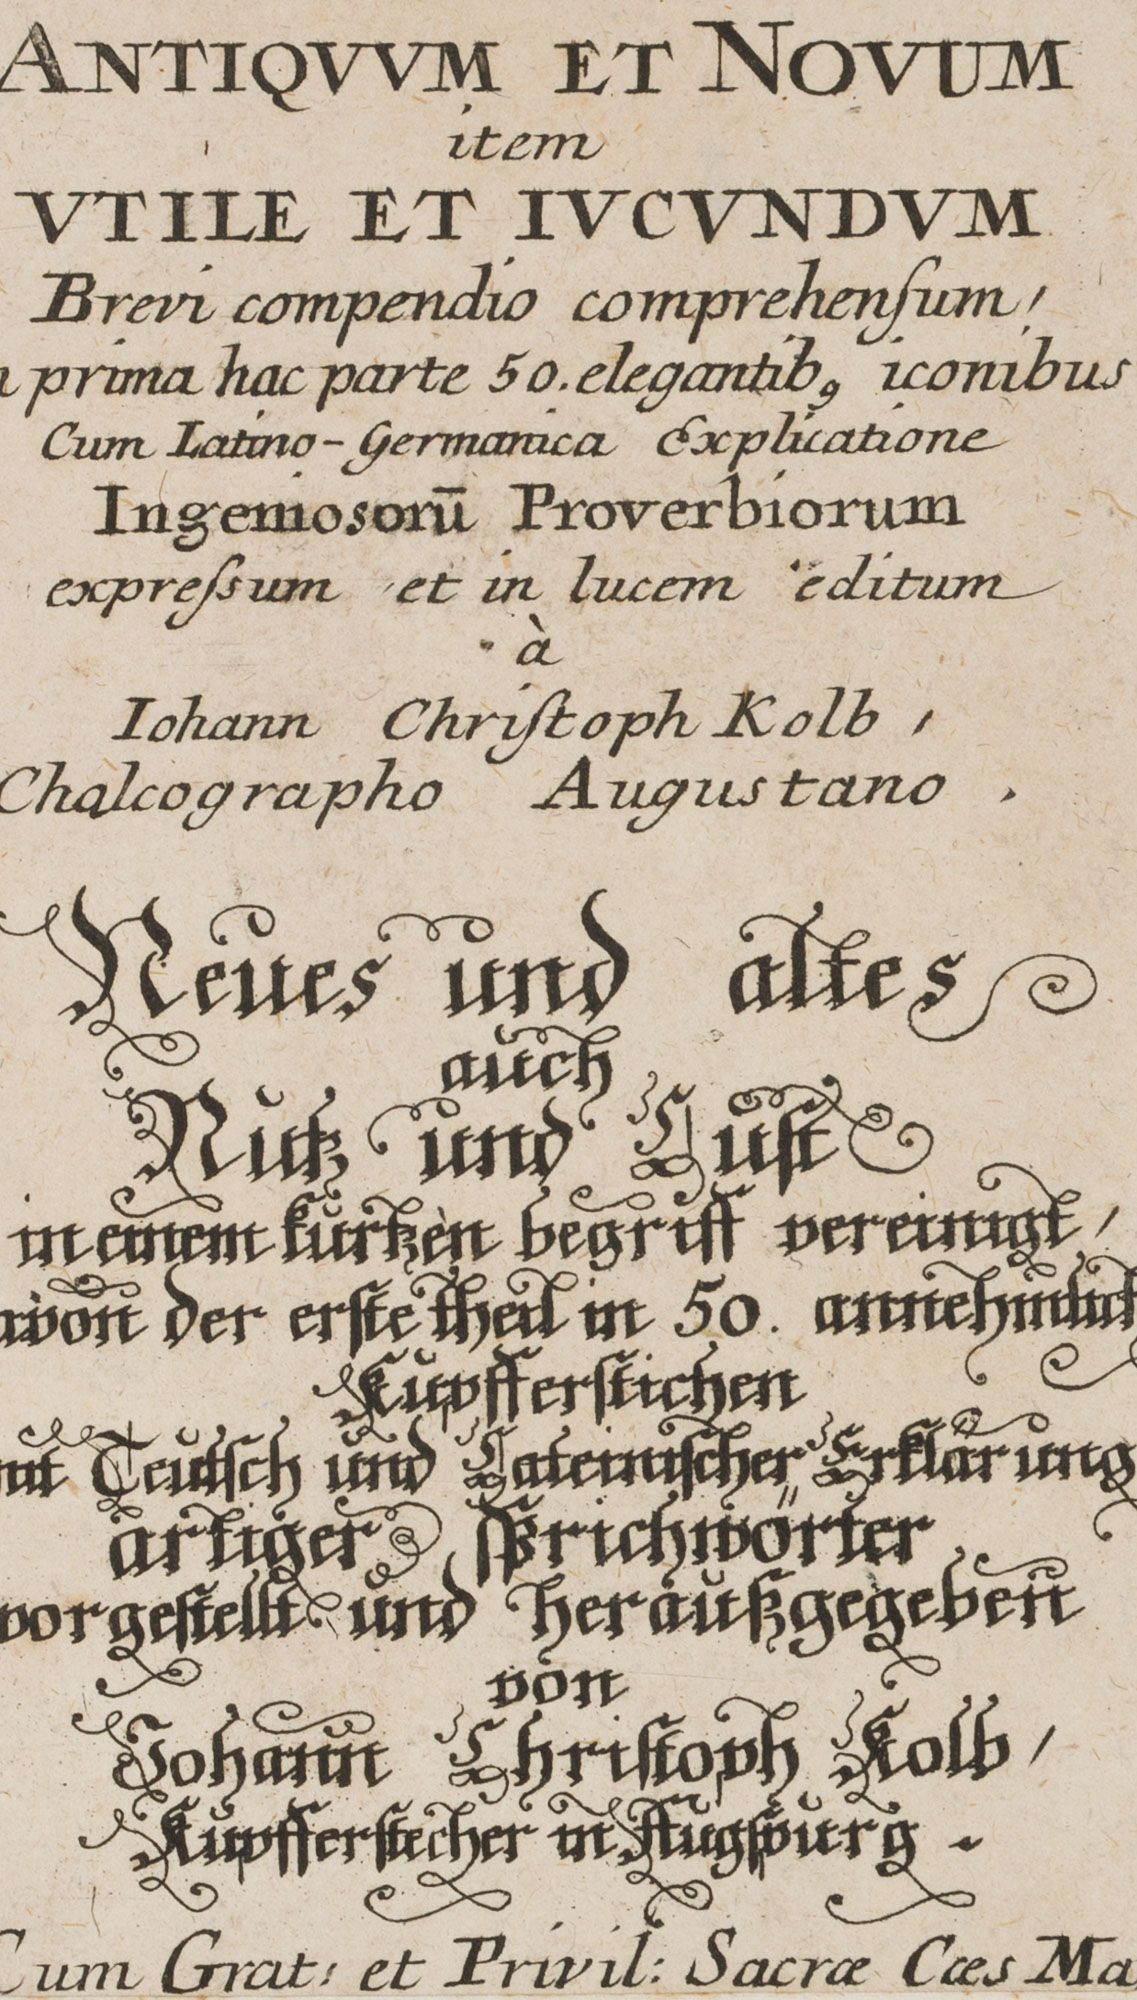 ANTIQVVM ET NOVUM
item
VTILE ET IVCVNDVM
Brevi compendio comprehenſum /
prima hac parte 50. elegantibꝰ iconibus
Cum Latino-Germanica Explicatione
Ingeniosorū Proverbiorum
expreſsum et in lucem editum
à
Iohann Chriſtoph Kolb /
Chalcographo Augustano .
Neues und altes
auch
Nutz und Luſt
in einem kurtzen begriff vereinigt /
der erſte theil in 50.
Kupfferſtichen
Teutſch und Lateiniſcher Erklärung
artiger ſprichwörter
vorgeſtellt und heraußgegeben
von
Johann Chriſtoph Kolb /
Kupfferſtecher in Augſpurg .
Cum Grat: et Privil: Sacræ Cæs Ma